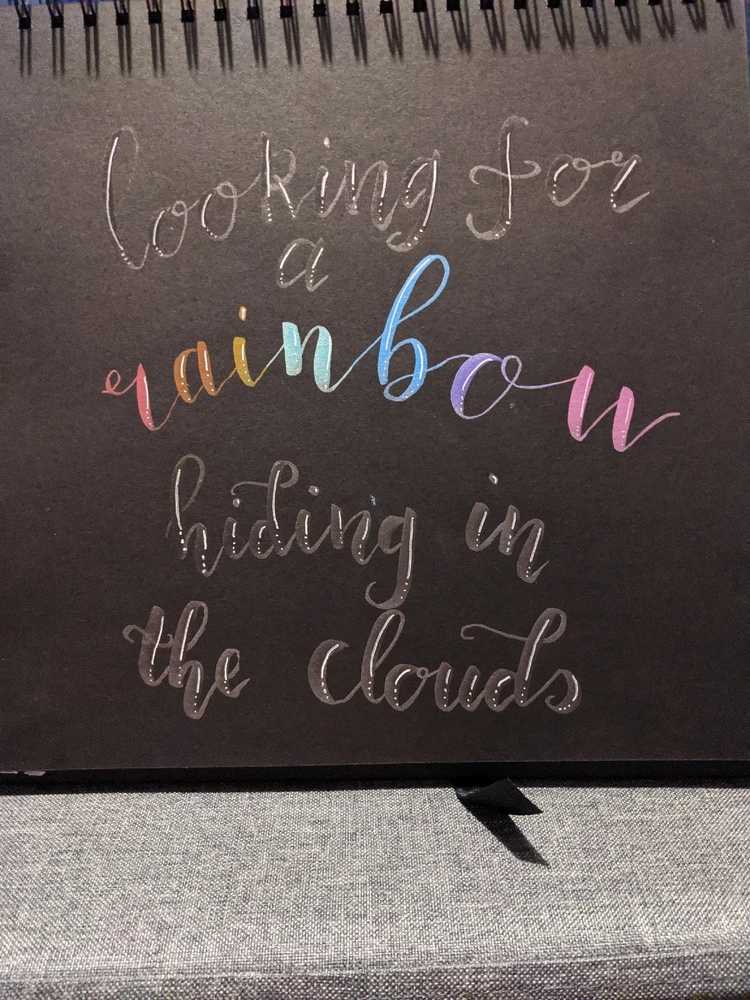 looking for
a
rainbow
hiding in
the clouds